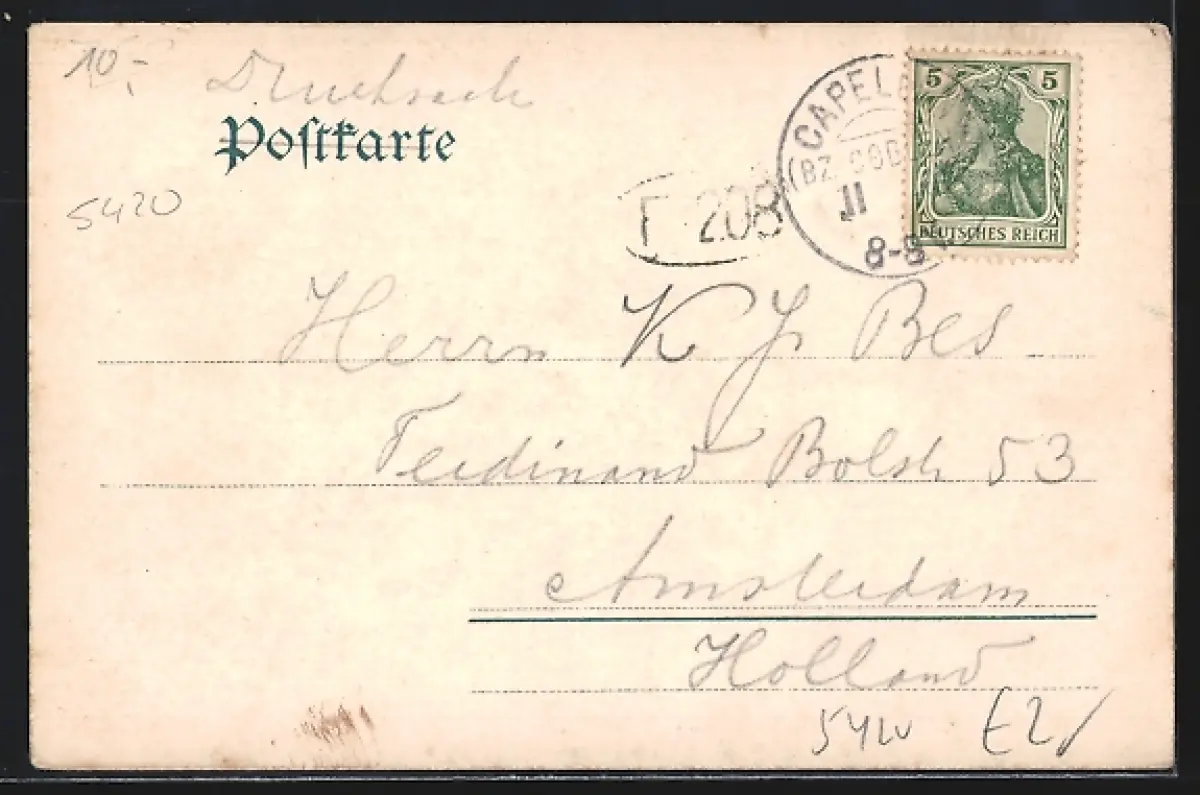 10.-
Drucksache
Postkarte
5420
CAPEL
(BZ. COB
11
8-8
208
5 5
DEUTSCHES REICH
Herrn K J Bes
Ferdinand Bolstr 53
Amsterdam
Holland
5420 E2/